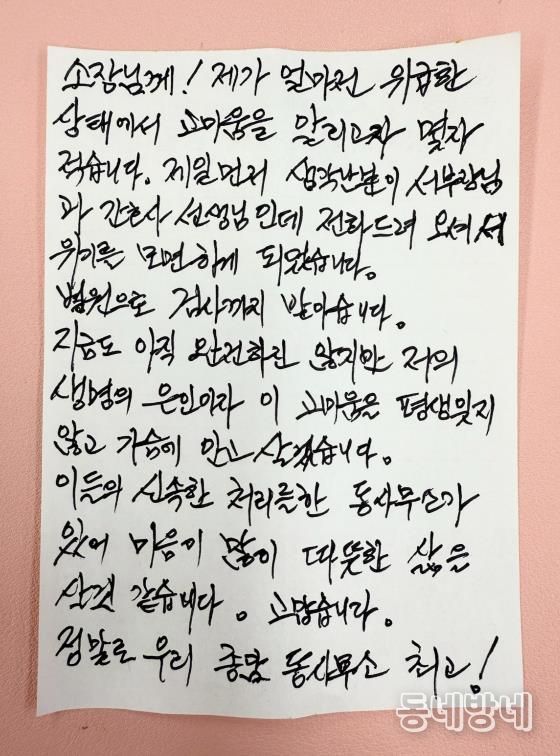 소장님께! 제가 얼마전 위급한
상태에서 고마움을 알리고자 몇자
적습니다. 제일먼저 생각난분이 서부장님
과 간호사 선생님인데 전화드려 오셔서
위기를 모면하게 되었습니다.
병원으로 검사까지 받아습니다.
지금도 아직 완전하진 않지만 저의
생명의 은인이라 이 고마움을 평생잊지
않고 가슴에 안고 살겠습니다.
이들의 신속한 처리를한 동사무소가
있어 마음이 많이 따뜻한 삶을
산것 같습니다. 고맙습니다.
정말로 우리 종암 동사무소 최고!
동네방네